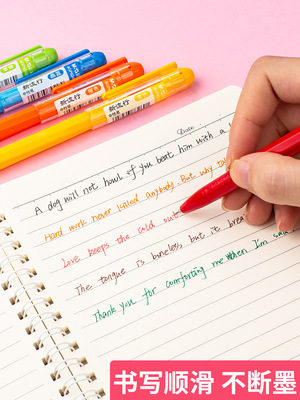 新流行
新流行
新流行
Date:
A dog will not howl if you beat him with a
Hard work never killed anybody. But why
Love keeps the cold out
The tongue is boneless, but it
Thank you for comforting me When I'm sad
书写顺滑 不断墨